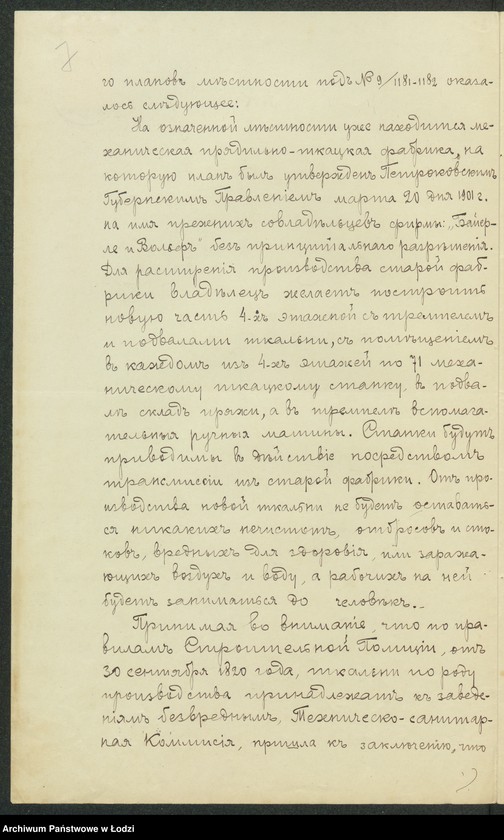 7
го плановъ мѣстности подъ № 9/1181-1182 оказа-
лось слѣдующее:
На означенной мѣстности уже находится ме-
ханическая прядильно-ткацкая фабрика, на
которую планъ былъ утвержденъ Петроковскимъ
Губернскимъ Правленіемъ марта 20 дня 1901 г.
на имя прежнихъ совладѣльцевъ фирмы: „Байер-
ле и Вольфъ" безъ принципіальнаго разрѣшенія.
Для расширенія производства старой фаб-
рики владѣлецъ желаетъ построить
новую часть 4-хъ этажной съ тремпелемъ
и подвалами ткальни, съ помѣщеніемъ
въ каждомъ изъ 4-хъ этажей по 71 меха-
ническому ткацкому станку, въ подва-
лѣ складъ пряжи, а въ тремпелѣ вспомога-
тельныя ручныя машины. Станки будутъ
приводимы въ дѣйствіе посредствомъ
трансмисіи изъ старой фабрики. Отъ про-
изводства новой ткальни не будетъ оставать-
ся никакихъ нечистотъ, отбросовъ и сто-
ковъ, вредныхъ для здоровія, или заража-
ющихъ воздухъ и воду, а рабочихъ на ней
будетъ заниматься до человѣкъ.
Принимая во вниманіе, что по пра-
виламъ Строительной Полиціи, отъ
30 сентября 1820 года, ткальни по роду
производства принадлежатъ къ заведе-
ніямъ безвреднымъ, Техническо-санитар-
ная Коммисія, пришла къ заключенію, что
Archiwum Państwowe w Łodzi